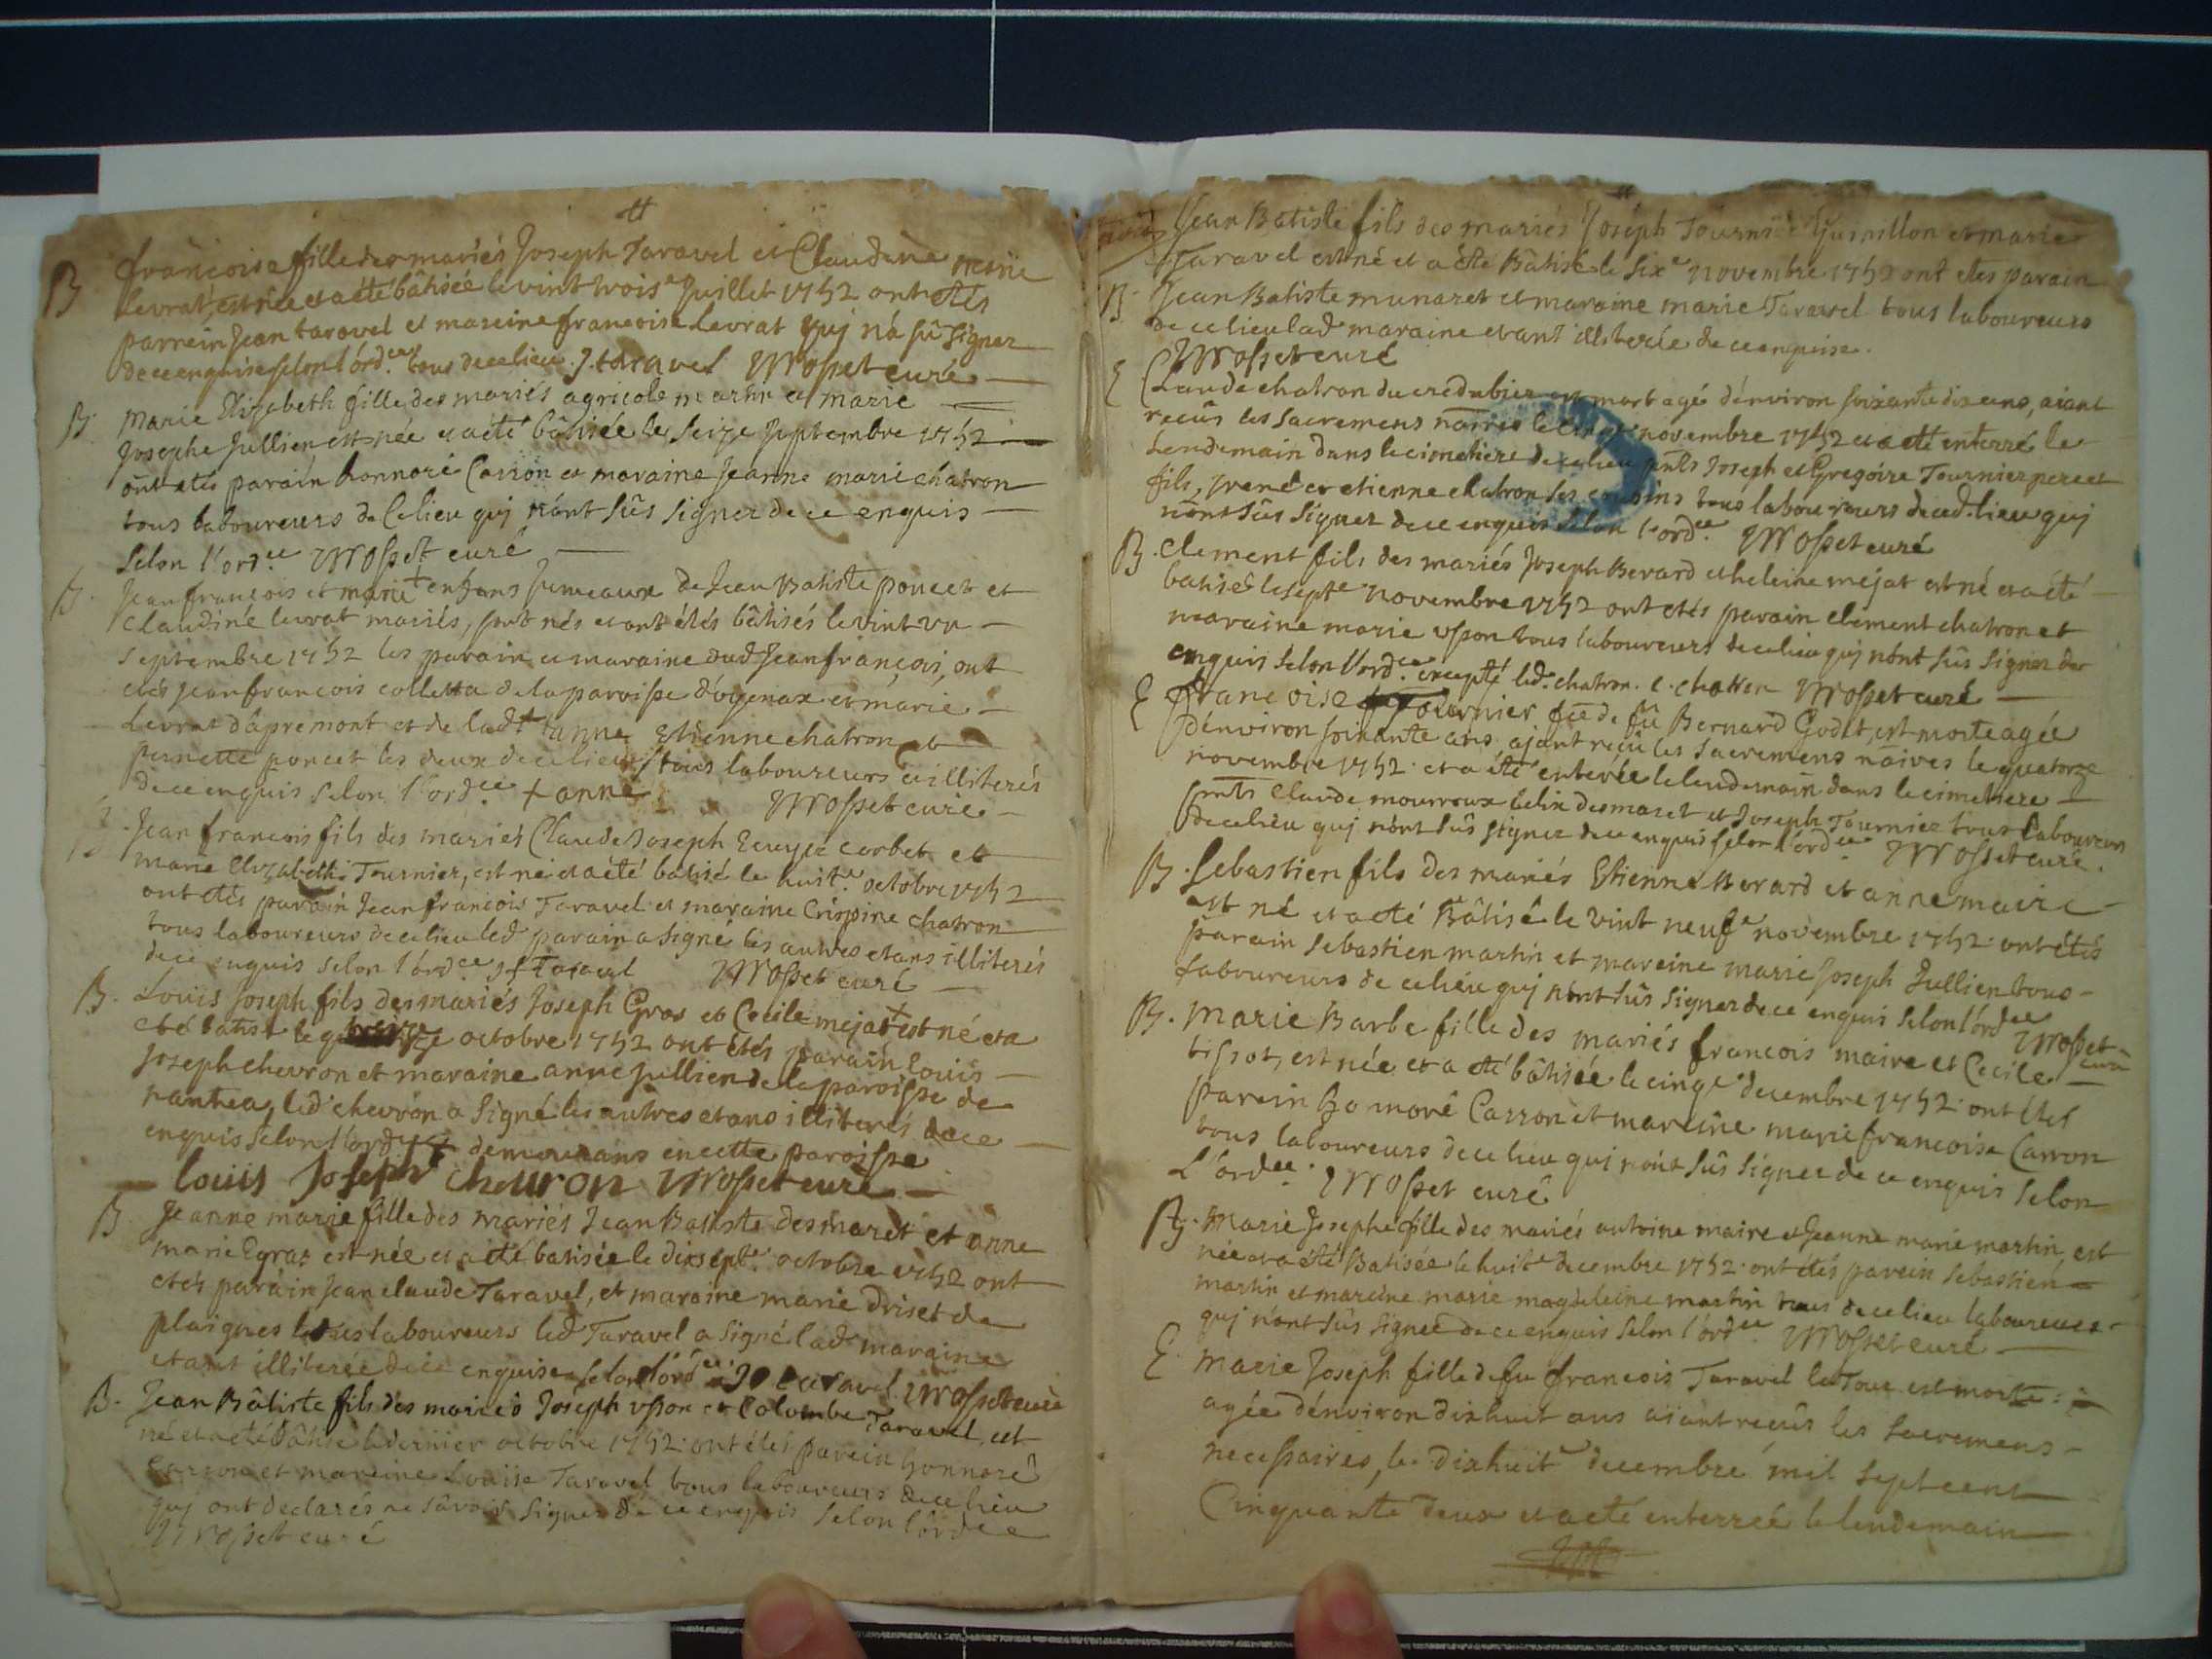 B françoise fille des mariés Joseph Taravel et Claudine
Levrat, est née et a été bâtisée le vint trois.e Juillet 1752 ont etés
parrein Jean taravel et mareine françoise Levrat quj n'a sû signer
de ce enquise selon l'ord.ce tous de ce lieu. J. taravel Mosset curé
B. Marie Elizabeth fille des mariés agricole martin et marie
Josephe Jullien est née et a été bâtisée le seize septembre 1752
ont etés parain honnoré Carron et maraine Jeanne marie chatron
tous laboureurs de Celieu quj n'ont sûs signer de ce enquis
selon l'ord.ce Mosset curé
B. Jean françois et marie + enfans Jumeaux de Jean Batiste poncet et
Claudine levrat mariés, sont nés et ont étés bâtisés le vint un
septembre 1752 les parain et maraine dud Jean françois, ont
etés Jean françois colletta de la paroisse d'oyenax et marie
Levrat d'apremont et de lad.+ anne Etienne chatron et
pernette poncet les deux de ce lieu tous laboureurs et illiterés
de ce enquis selon l'ord.ce + anne Mosset curé
B. Jean francois fils des mariés Claude Joseph Ecuyer corbet et
marie Elizabeth Tournier, est né et a été batisé le huit.e octobre 1752
ont etés parain Jean francois Taravel et maraine Crispine chatron
tous laboureurs de ce lieu led parain a signé les autres etans illiterés
de ce enquis selon l'ord.ce jf Taravel Mosset curé
B. Louis Joseph fils des mariés Joseph Gros et Cecile mejat + est né et a
eté batisé le octobre 1752 ont étés parain Louis
Joseph chevron et maraine anne Jullien de la paroisse de
nantua, led chevron a signé les autres etans illiterés de ce
enquis selon l'ord + demeurans en cette paroisse
Louis Joseph chevron Mosset curé
B. Jeanne marie fille des mariés Jean Batiste desmaret et anne
marie Egraz est née et a été batisée le dixsept.e octobre 1752 ont
etés parain Jean claude Taravel, et maraine marie driset de
plaignes tous laboureurs led Taravel a signé lad maraine
etant illiterée de ce enquise selon l'ord.ce Taravel Mosset curé
B. Jean Bâtiste fils des mariés Joseph usson et Colombe Taravel, est
né et a été Bâtisé le dernier octobre 1752. ont étés parein honnoré
Carron et mareine Louise Taravel tous laboureurs de ce lieu
quj ont declarés ne sâvoir signer de ce enquis selon l'ordce
Mosset curé
Jean Batiste fils des mariés Joseph Tournier Gusnillon et marie
Taravel est né et a été Bâtisé le six.e novembre 1752 ont etés parain
B. Jean Batiste munaret et maraine marie Taravel tous laboureurs
de ce lieu lad maraine etant illiterée de ce enquise.
Mosset curé
E Claude chatron du credubier est mort agé d'environ soixante dix ans, aiant
recûs les sacremens le novembre 1752 et a été enterré le
Lendemain dans le cimetiere de ce lieu pnts Joseph et Gregoire Tournier pere et
fils, et etienne chatron ses cousins tous laboureurs de ced. lieu quj
n'ont sûs signer de ce enquis selon l'ord.ce Mosset curé
B. Clement fils des mariés Joseph Berard et heleine mejat est né et a été
batisé le sept.e novembre 1752 ont etés parain clement chatron et
maraine marie usson tous laboureurs de ce lieu quj n'ont sûs signer de
enquis selon l'ord.ce excepté led. chatron. c. chatron Mosset curé
E francoise Tournier de fû Bernard Godet, est morte agée
d'environ soixante ans, ajant reçu les sacremens le quatorze
novembre 1752. et a été enterée le lendemain dans le cimetiere
pnts Claude mourroux Felix desmaret et Joseph Tournier tous laboureurs
de ce lieu quj n'ont sûs signer de ce enquis selon l'ord.ce Mosset curé.
B. Sebastien fils des mariés Etienne Berard et anne maire
est né et a été Bâtisé le vint neuf.e novembre 1752. ont étés
parain sebastien martin et mareine marie Joseph Jullien tous
laboureurs de ce lieu quj n'ont sûs signer de ce enquis selon l'ord.ce
Mosset curé
B. Marie Barbe fille des mariés francois maire et Cecile
tissot, est née et a été bâtisée le cinq.e decembre 1752. ont étés
parein honnoré Carron et mareine marie francoise Carron
tous laboureurs de ce lieu qui n'ont sûs signer de ce enquis selon
L'ord.ce. Mosset curé
B. Marie Josephe fille des mariés antoine maire et Jeanne marie martin, est
née et a été Batisée le huit.e decembre 1752. ont étés parein sebastien
martin et mareine marie magdeleine martin tous de ce lieu laboureurs
quj n'ont sûs signer de ce enquis selon l'ord.ce Mosset curé
E. Marie Joseph fille de fu francois Taravel est morte
agée d'environ dixhuit ans aiant recûs les sacremens
necessaires, le dixhuit.e decembre mil sept cent
Cinquante deux et a été enterrée le lendemain